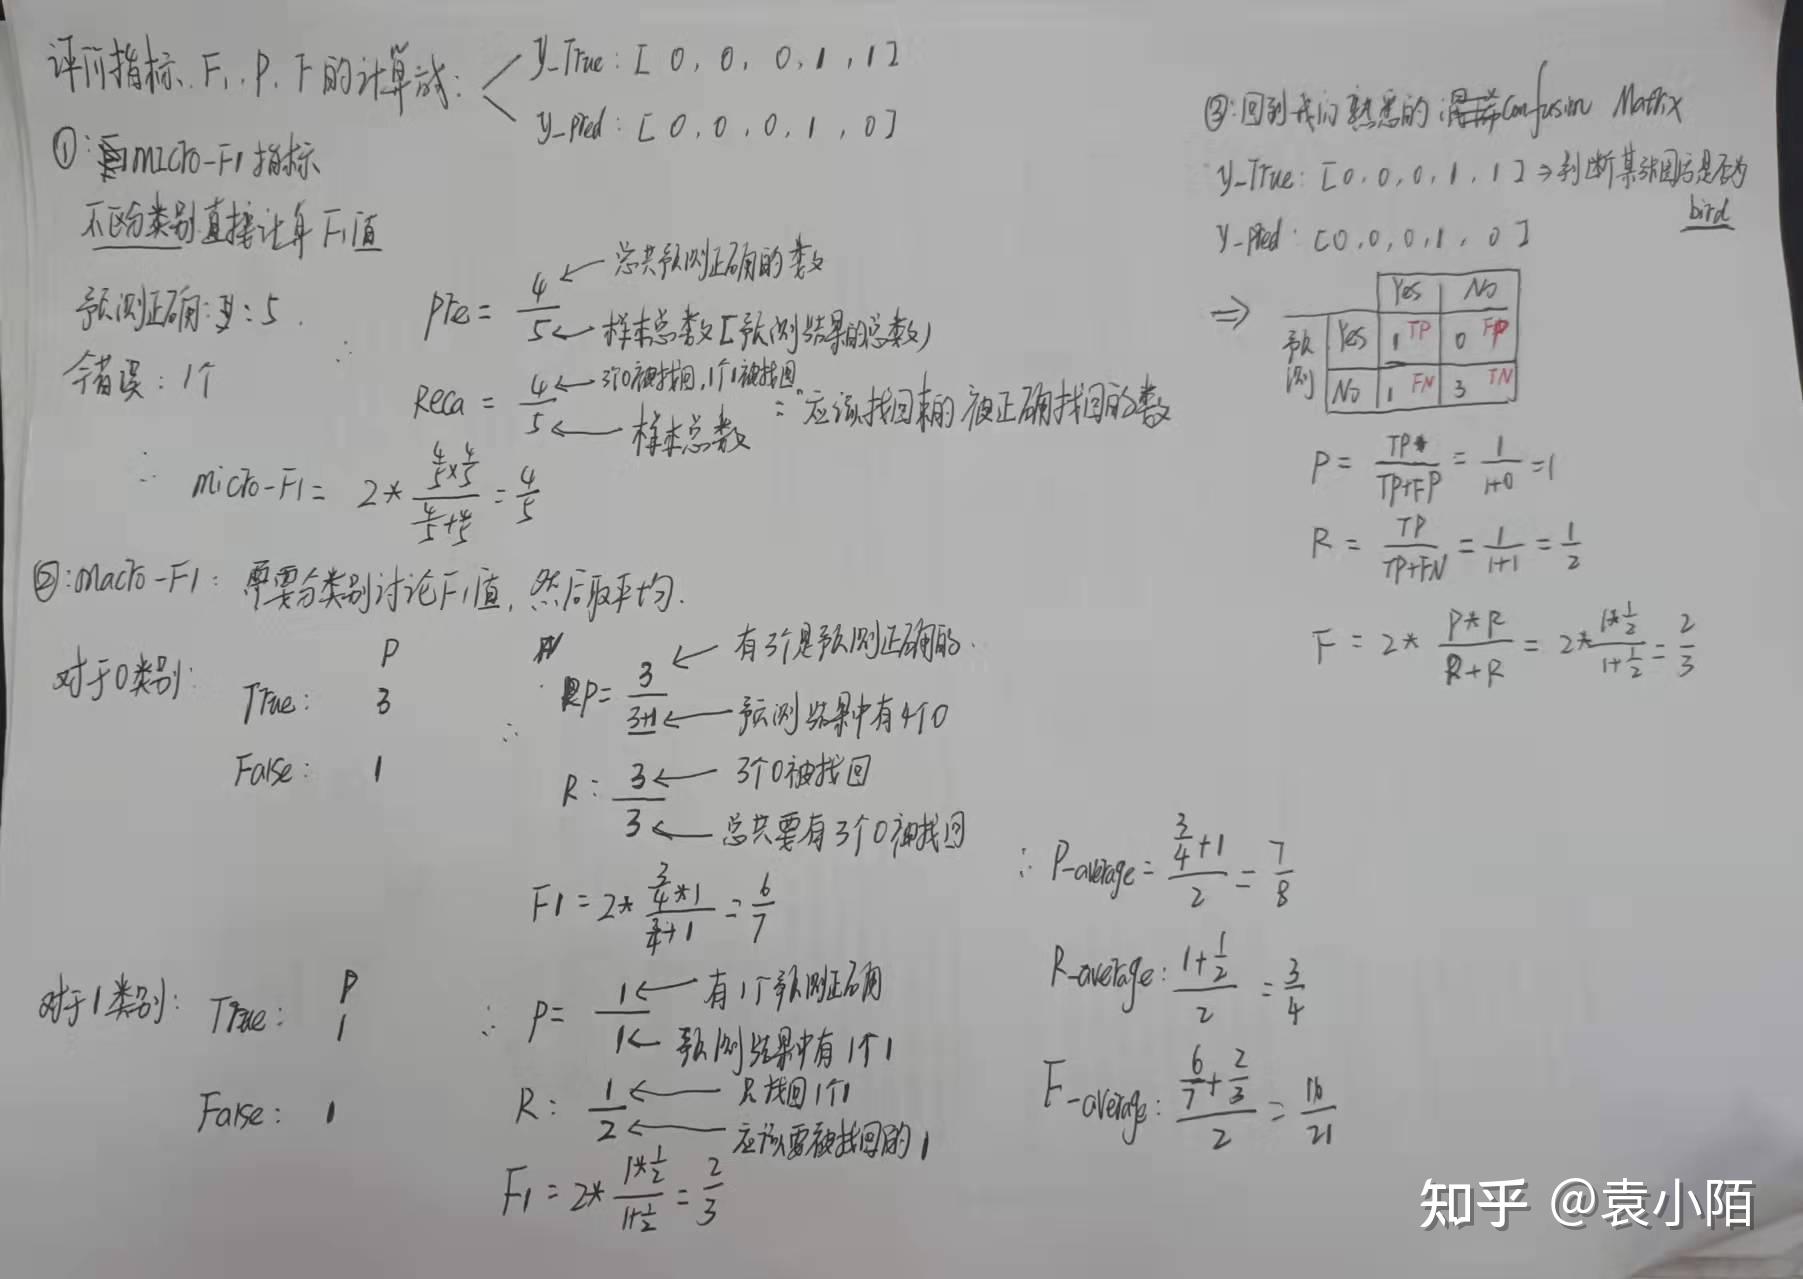 评价指标、F1、P、F的计算方式:
y_True: [0, 0, 0, 1, 1]
y_pred: [0, 0, 0, 1, 0]
①: micro-F1指标
不区分类别直接计算F1值
预测正确: : 5.
错误: 1个
∴
Pre = 4/5
总共预测正确的类数
样本总数[预测结果的总数)
Reca = 4/5
3个0被找回,1个1被找回
样本总数
= "应该找回来的 被正确找回的类数
∴ micro-F1 = 2* (4/5×4/5)/(4/5+4/5) = 4/5
②: macro-F1: 需要分类别讨论F1值,然后取平均.
对于0类别:
P
True: 3
False: 1
∴ P = 3/(3+1)
有3个是预测正确的.
预测结果中有4个0
R: 3/3
3个0被找回
总共要有3个0被找回
F1 = 2* (3/4*1)/(3/4+1) = 6/7
对于1类别:
P
True: 1
False: 1
∴ P = 1/1
有1个预测正确
预测结果中有1个1
R: 1/2
只找回1个1
应该要被找回的1
F1 = 2* (1*1/2)/(1+1/2) = 2/3
③: 回到我们熟悉的 Confusion Matrix
y_True: [0, 0, 0, 1, 1] ⇒ 判断某张图片是否为
bird
y_pred: [0, 0, 0, 1, 0]
⇒
Yes No
预测 Yes 1 TP 0 FP
No 1 FN 3 TN
P = TP/(TP+FP) = 1/(1+0) = 1
R = TP/(TP+FN) = 1/(1+1) = 1/2
F = 2* (P*R)/(R+R) = 2* (1*1/2)/(1+1/2) = 2/3
∴ P-average = (3/4+1)/2 = 7/8
R-average: (1+1/2)/2 = 3/4
F-average: (6/7+2/3)/2 = 16/21
知乎 @袁小陌